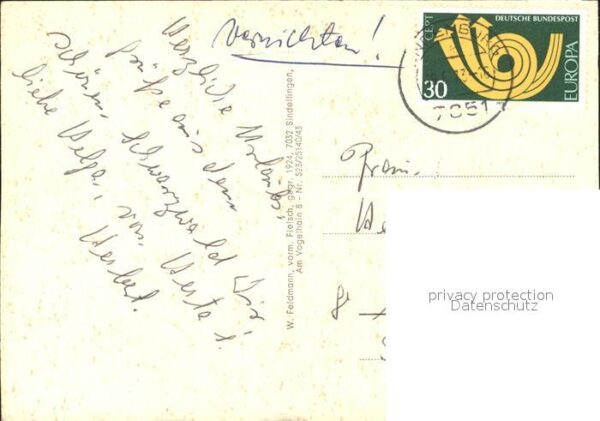 Vernichten!
Herzliche Urlaubs-
grüße aus dem
schönen Schwarzwald Dir
liebe Helga, von Herta u.
Herbert.
W. Feldmann, vorm. Fleisch, gegr. 1924, 7032 Sindelfingen,
Am Vogelhain 8 - Nr. S23/25140/43
CEPT
DEUTSCHE BUNDESPOST
30
EUROPA
7051
Frau
privacy protection
Datenschutz